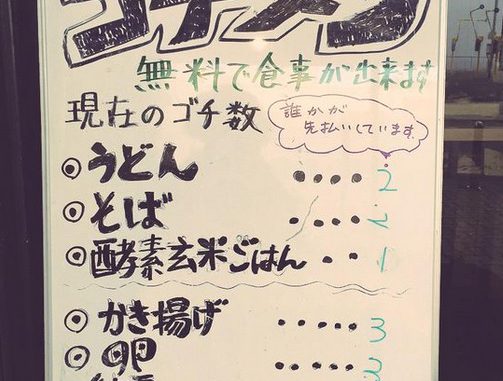 ゴチメシ
無料で食事が出来ます
現在のゴチ数
誰かが
先払いしています。
◎うどん ・・・・ 2
◎そば ・・・・ 2
◎酵素玄米ごはん ・・ 1
◎かき揚げ ・・・・・ 3
◎卵 ・・・・・ 2